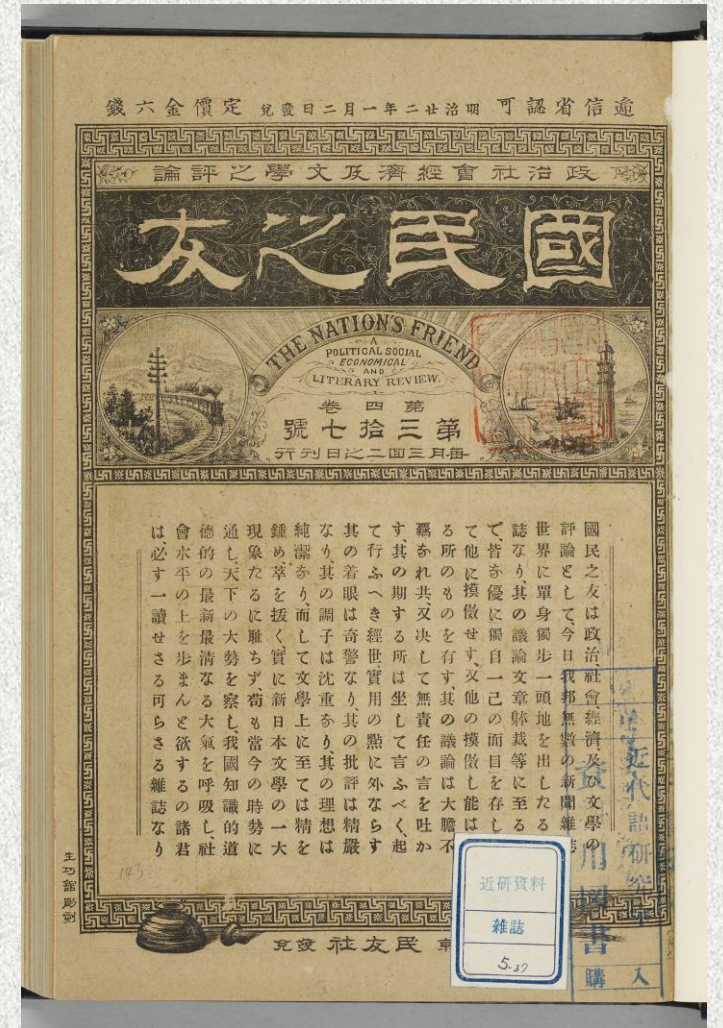 遞信省認可 明治廿二年一月二日發兌 定價金六錢
政治社會經濟及文學之評論
國民之友
THE NATION'S FRIEND
A
POLITICAL SOCIAL
ECONOMICAL
AND
LITERARY REVIEW.
第四卷
第三拾七號
每月三回二之日刊行
國民之友は政治、社會、經濟、及び文學の
評論として、今日我邦無數の新聞雜誌
世界に單身獨步一頭地を出したる
誌なり、其の議論文章躰裁等に至る
で、皆な優に獨自一己の面目を存し
て他に摸倣せす、又他の摸倣し能は
る所のものを有す、其の議論は大膽不
羈なれ共、又決して無責任の言を吐か
す、其の期する所は坐して言ふべく、起
て行ふへき經世實用の點に外ならす
其の着眼は奇警なり、其の批評は精嚴
なり、其の調子は沈重なり其の理想は
純潔なり、而して文學上に至ては精を
鍾め、萃を拔く、實に新日本文學の一大
現象たるに耻ちず、苟も當今の時勢に
通し、天下の大勢を察し、我國知識的道
德的の最新最清なる大氣を呼吸し、社
會水平の上を步まんと欲するの諸君
は、必す一讀せさる可らさる雜誌なり
生巧館彫刻
民友社發兌
143
近代語研究室
用圖書
購入
近研資料
雜誌
5.37